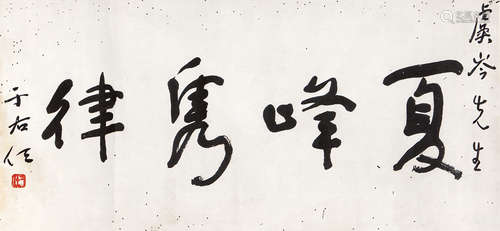 虞岑先生
夏峰隽律
于右任